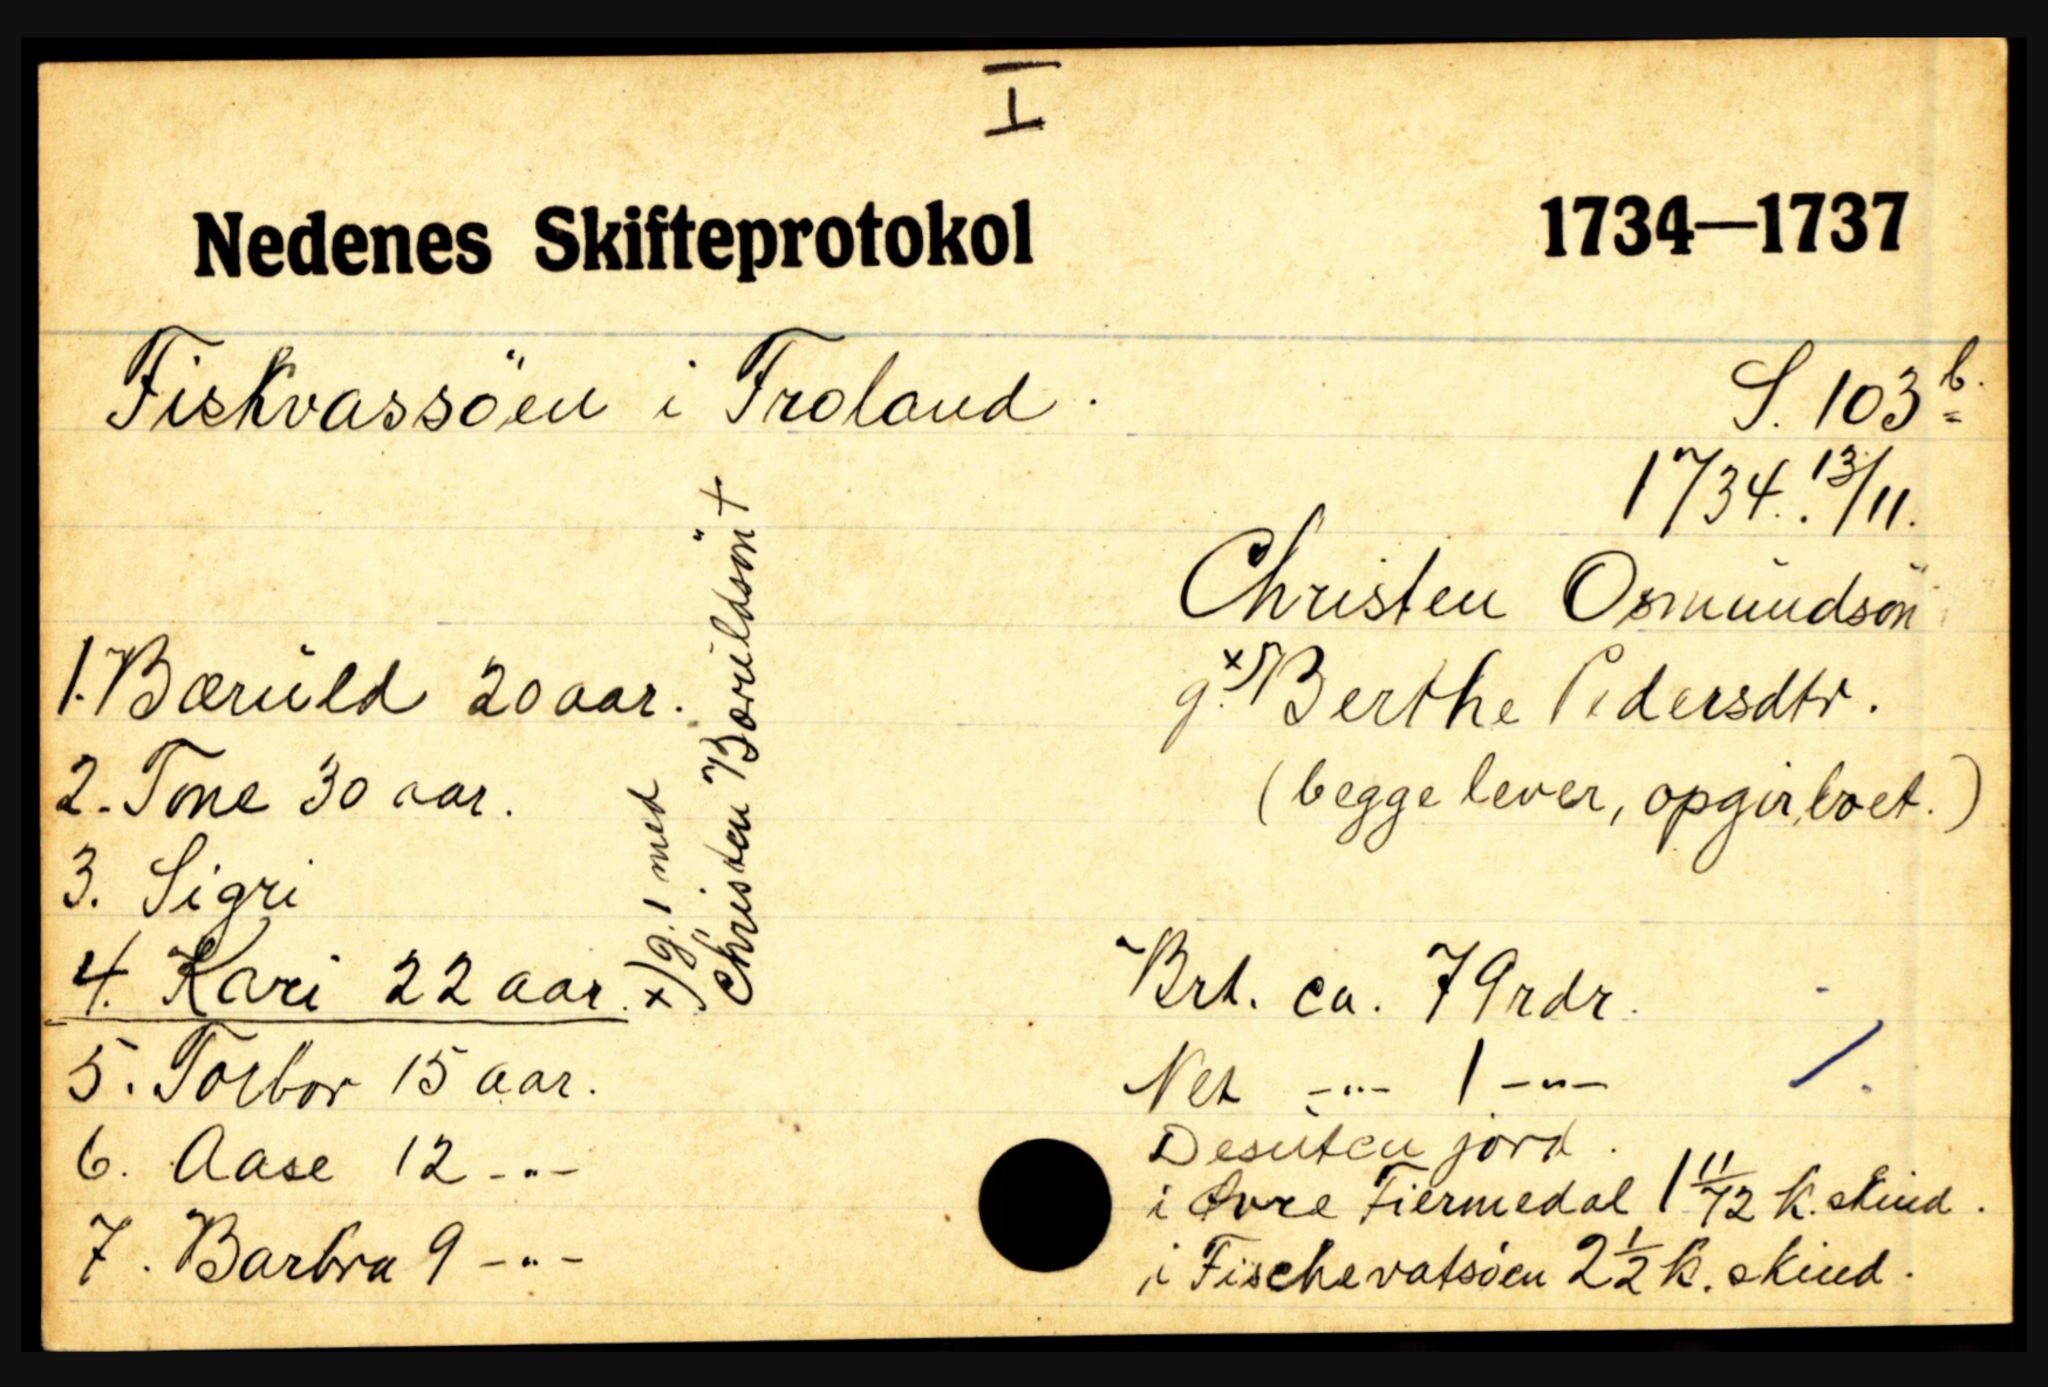 I
Nedenes Skifteprotokol 1734—1737
Fiskvassöen i Froland. S. 103 b.
1734. 13/11.
Christen Osmundsön
g. x) Berthe Pedersdtr.
(begge lever, opgir boet.)
1. Bæruld 20 aar.
2. Tone 30 aar.
3. Sigri
4. Kari 22 aar.
5. Torbor 15 aar.
6. Aase 12 -"-
7. Barbra 9 -"-
x) g. 1 med
Christen Bæruldsön +
Brt. ca. 79 rdr.
Net -"- 1 -"-
Desuten jord.
i Øvre Fiermedal 1 11/12 k. skind.
i Fischevatsöen 2 1/2 k. skind.